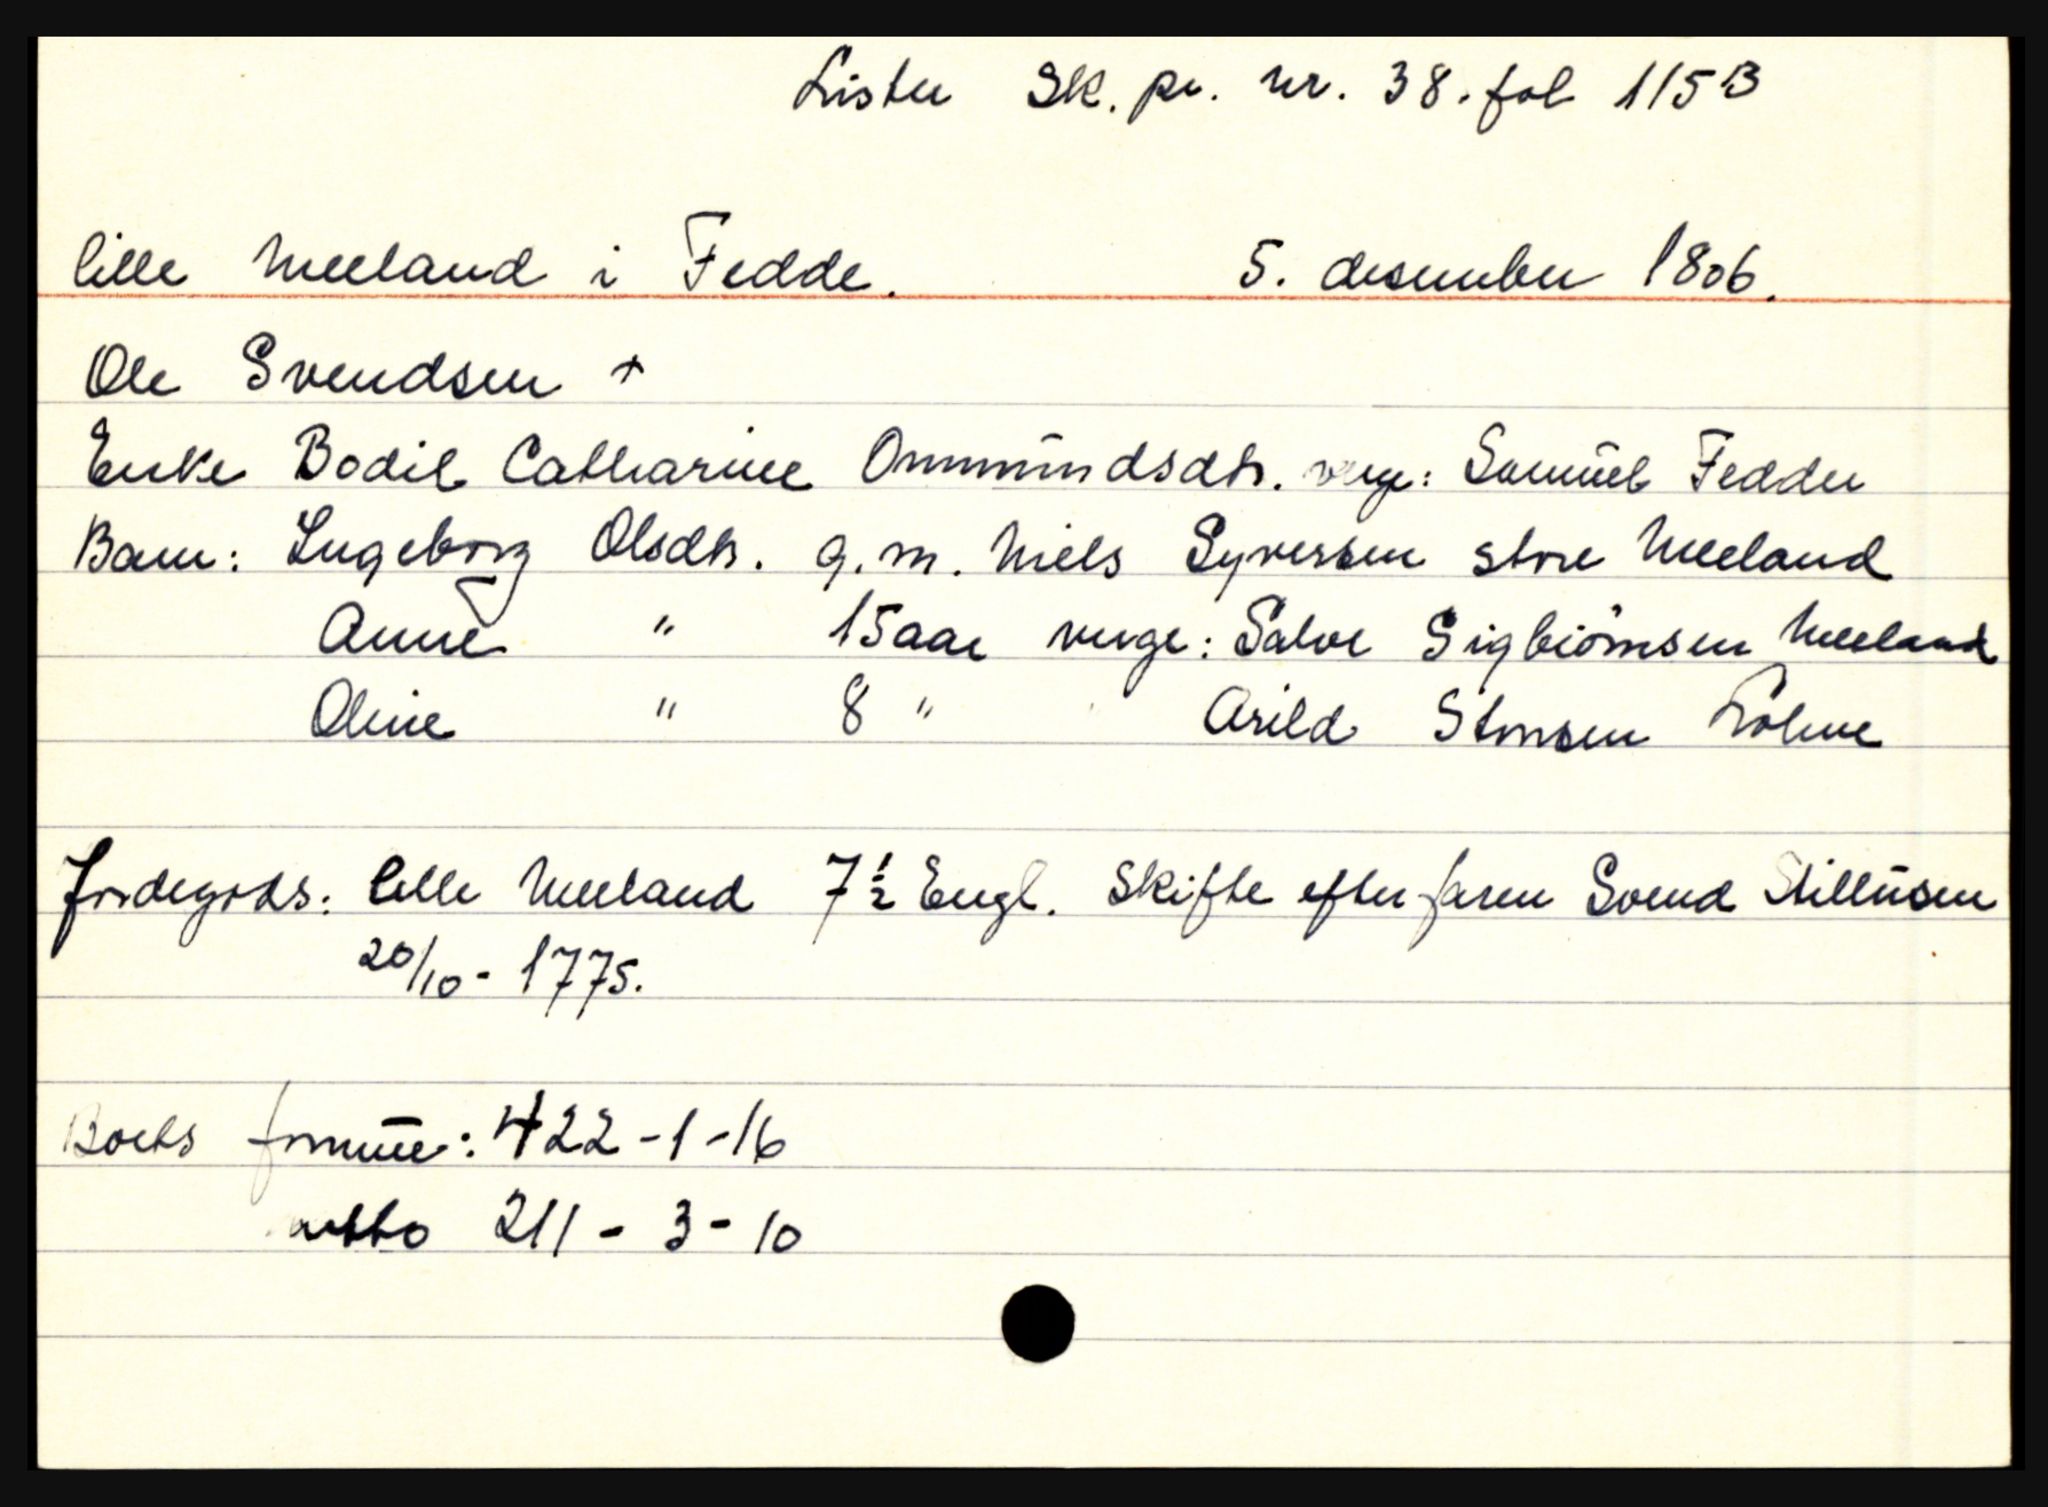 Lister Sk. pr. nr. 38. fol 115B
lille Meeland i Fedde. 5. desember 1806.
Ole Svendsen +
Enke Bodil Catharine Ommŭndsdtr. verge: Samŭel Fedde
Barn: Ingeborg Olsdtr. g.m. Niels Syversen store Meeland
Anne " 15 aar verge: Salve Sigbiörnsen Meeland
Oline " 8 " Arild Lohne
Jordegods: lille Meeland 7 ½ Engl. Skifte efter faren Svend
20/10 - 1775.
Boets formŭe: 422 - 1 - 16
netto 211 - 3 - 10